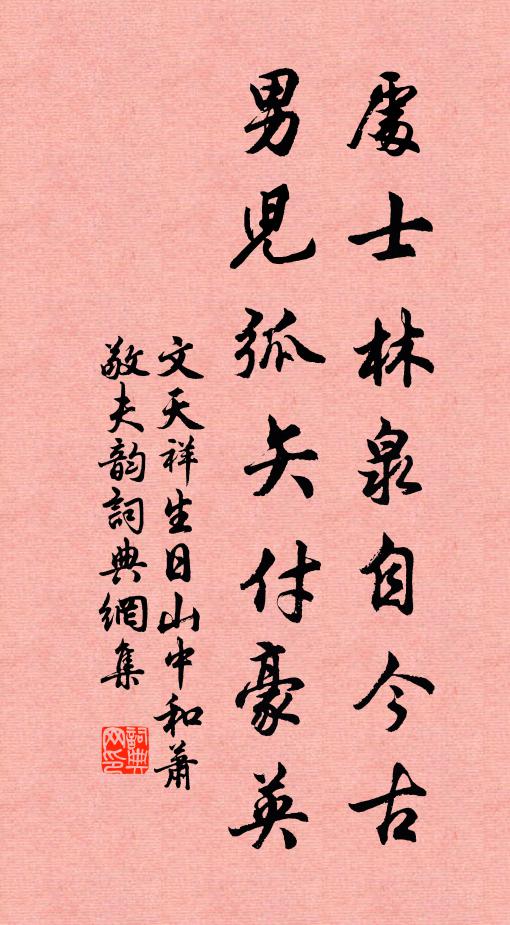 處士林泉自今古
男兒弧矢付豪英
文天祥生日山中和蕭
敬夫韵詞典網集
詞典网印